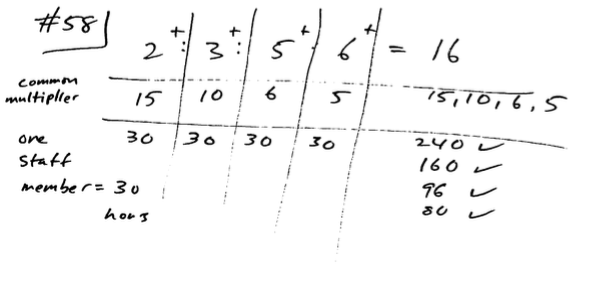 #58
2 +: 3 +: 5 +: 6 + = 16
common
multiplier 15 10 6 5 15, 10, 6, 5
one 30 30 30 30 240 ✓
staff 160 ✓
member = 30 96 ✓
hours 80 ✓